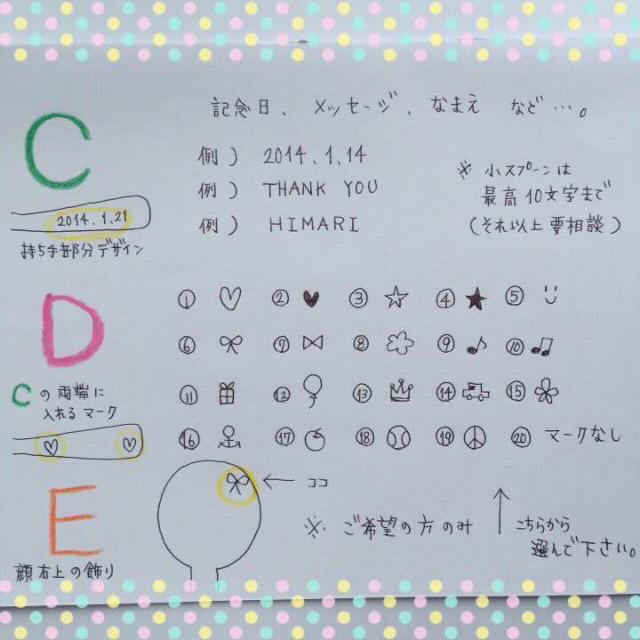 C
記念日、メッセージ、なまえ など…。
例) 2014.1.14
例) THANK YOU
例) HIMARI
※ 小スプーンは
最高10文字まで
(それ以上要相談)
2014.1.21
持ち手部分デザイン
D
① ♡ ② ♥ ③ ☆ ④ ★ ⑤
⑥ ⑦ ⑧ ⑨ ♪ ⑩ ♫
⑪ ⑫ ⑬ ⑭ ⑮
⑯ ⑰ ⑱ ⑲ ⑳ マークなし
Cの両端に
入れるマーク
E
顔右上の飾り
← ココ
※ ご希望の方のみ
↑ こちらから
選んで下さい。